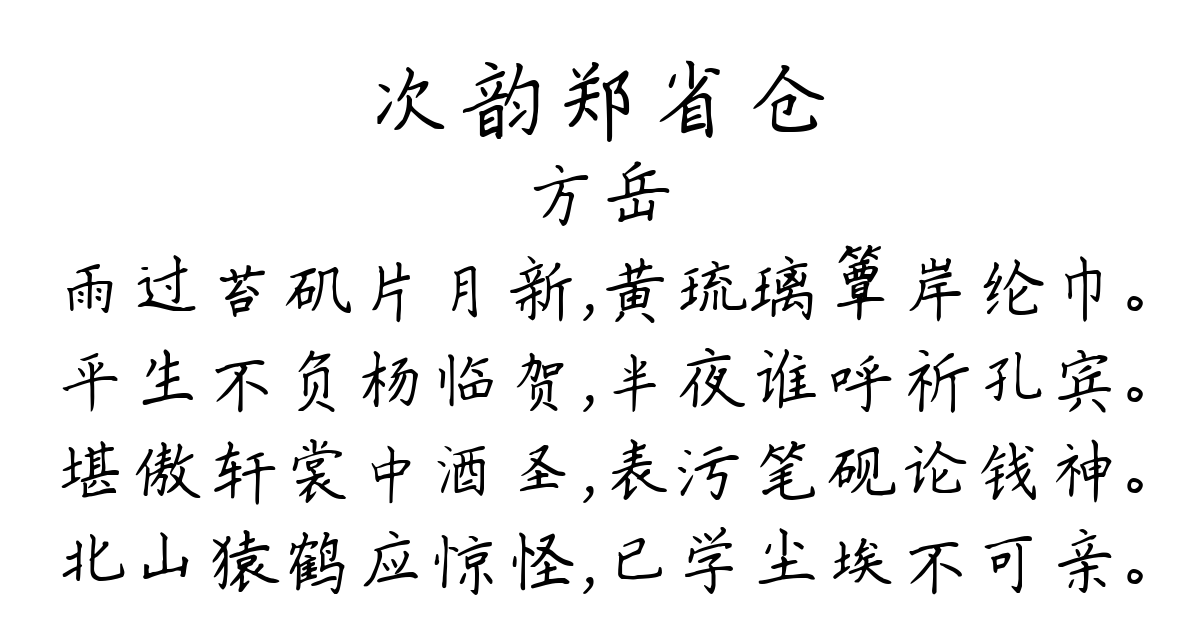 次韵郑省仓
方岳
雨过苔矶片月新,黄琉璃簟岸纶巾。
平生不负杨临贺,半夜谁呼祈孔宾。
堪傲轩裳中酒圣,表污笔砚论钱神。
北山猿鹤应惊怪,已学尘埃不可亲。